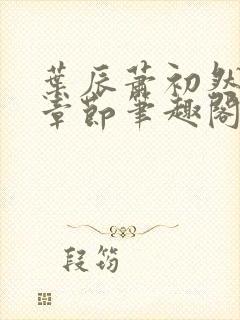 葉辰蕭初然
章節筆趣閣
段筠